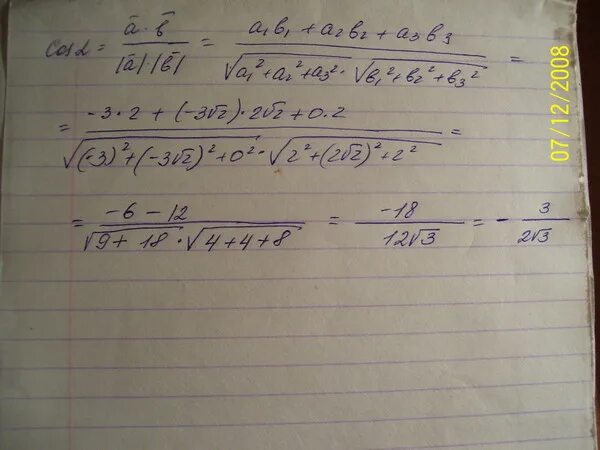 cos α = (a̅ · b̅) / (|a̅| · |b̅|) = (a₁b₁ + a₂b₂ + a₃b₃) / (√(a₁² + a₂² + a₃²) · √(b₁² + b₂² + b₃²)) =
= (-3 · 2 + (-3√2) · 2√2 + 0 · 2) / (√((-3)² + (-3√2)² + 0²) · √(2² + (2√2)² + 2²)) =
= (-6 - 12) / (√(9 + 18) · √(4 + 4 + 8)) = -18 / (12√3) = - 3 / (2√3)
07/12/2008